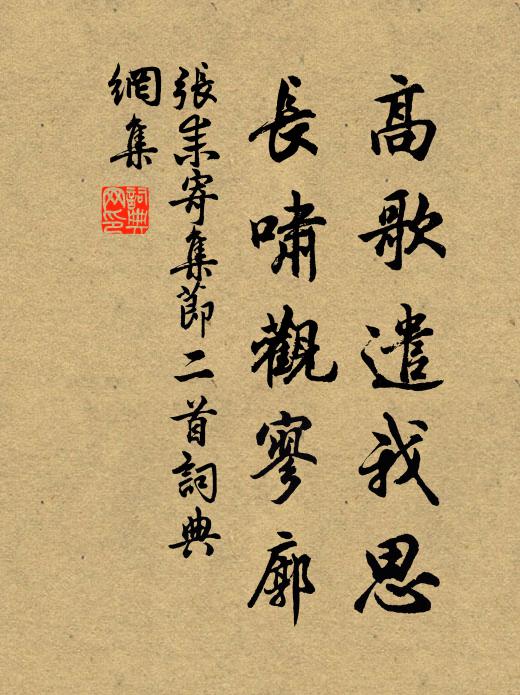 高歌遣我思
長嘯觀寥廓
張耒寄集節二首詞典
網集
詞典
网印